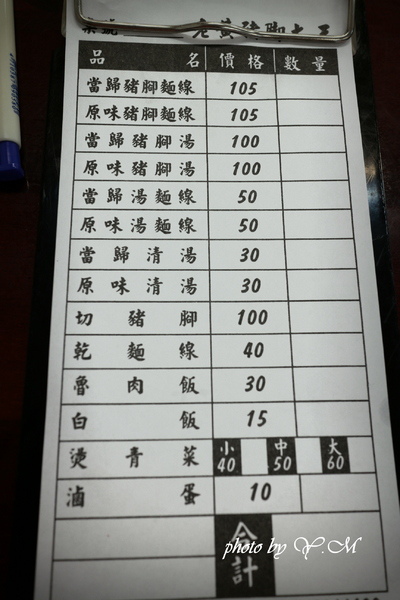 品名 價格 數量
當歸豬腳麵線 105
原味豬腳麵線 105
當歸豬腳湯 100
原味豬腳湯 100
當歸湯麵線 50
原味湯麵線 50
當歸清湯 30
原味清湯 30
切豬腳 100
乾麵線 40
魯肉飯 30
白飯 15
燙青菜 小40 中50 大60
滷蛋 10
合計
photo by Y.M